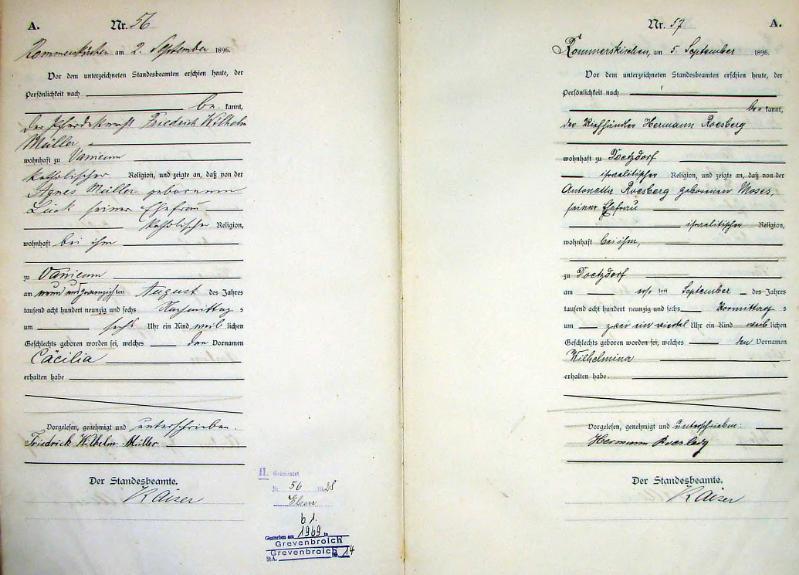 A. Nr. 56
Rommerskirchen am 2. September 1896.
Vor dem unterzeichneten Standesbeamten erschien heute, der
Persönlichkeit nach
be kannt,
der Friedrich Wilhelm
Müller
wohnhaft zu Vanicum
katholischer Religion, und zeigte an, daß von der
Agnes Müller geborenen
Lück seiner Ehefrau
katholische Religion,
wohnhaft bei ihm
zu Vanicum
am neun und zwanzigsten August des Jahres
tausend acht hundert neunzig und sechs Nachmittag s
um sechs Uhr ein Kind weib lichen
Geschlechts geboren worden sei, welches den Vornamen
Cäcilia
erhalten habe
Vorgelesen, genehmigt und unterschrieben.
Friedrich Wilhelm Müller
Der Standesbeamte.
Kaiser
II.
56
b 1.
1969
Grevenbroich
Grevenbroich
14
Nr. 57 A.
Rommerskirchen, am 5. September 1896.
Vor dem unterzeichneten Standesbeamten erschien heute, der
Persönlichkeit nach
be kannt,
der Viehhändler Hermann Roesberg
wohnhaft zu Doetzdorf
israelitischer Religion, und zeigte an, daß von der
Antonetta Roesberg geborenen Moses,
seiner Ehefrau
israelitischer Religion,
wohnhaft bei ihm,
zu Doetzdorf
am ersten September des Jahres
tausend acht hundert neunzig und sechs Vormittag s
um zwei ein viertel Uhr ein Kind weib lichen
Geschlechts geboren worden sei, welches den Vornamen
Wilhelmina
erhalten habe
Vorgelesen, genehmigt und Unterschrieben.
Hermann
Der Standesbeamte.
Kaiser